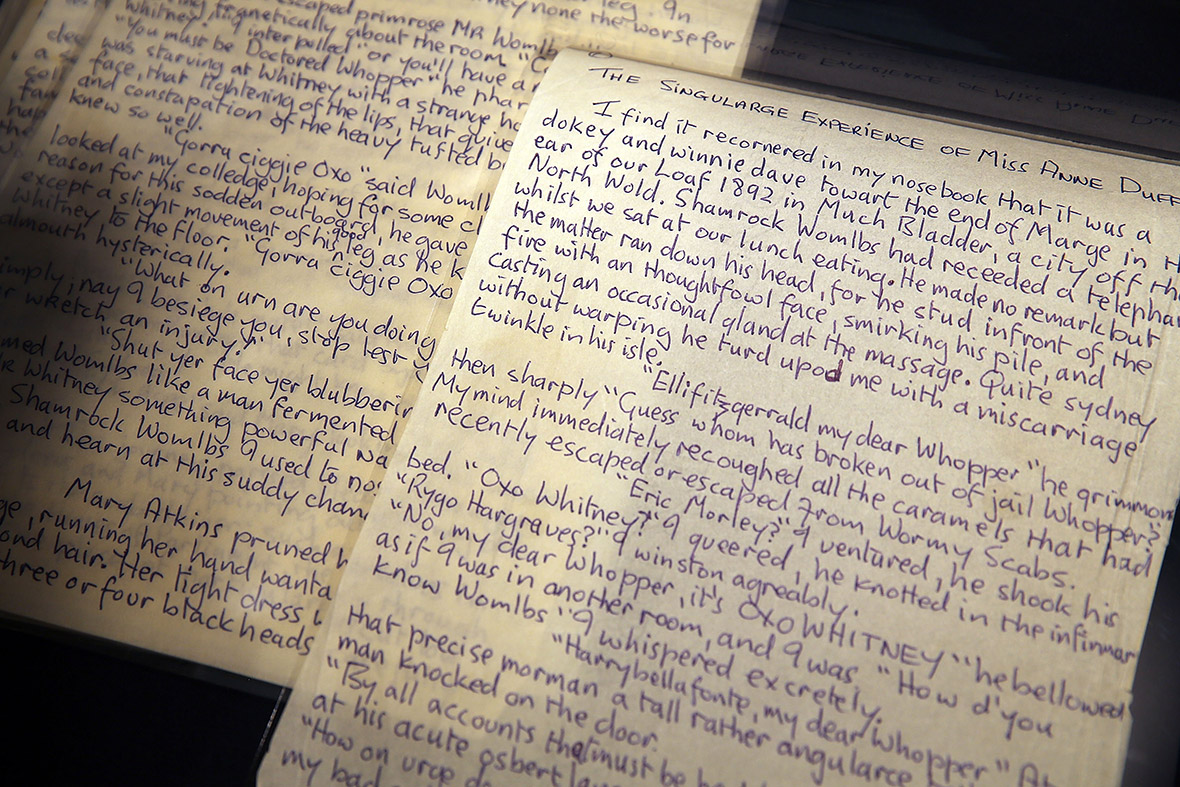 leg. In
escaped primrose Mr Womlb
they none the worse for
magnetically about the room
Whitney. "I interpolled" or you'll have a
"You must be Doctored Whopper" he phar
was starving at Whitney with a strange
face, that tightening of the lips, that quive
and constapation of the heavy tufted b
knew so well.
"Gorra ciggie Oxo" said Womlb
looked at my colledge, hoping for some
reason for this sodden outboard, he gave
except a slight movement of his good leg as he k
Whitney to the floor. "Gorra Ciggie Oxo
almouth hysterically.
"What on urn are you doing
imply, nay I besiege you, stop lest
wretch an injury."
"Shut yer face yer blubberin
med Womlbs like a man fermented
Whitney something powerful na
Shamrock Womlbs I used to no
and hearn at this suddy chan
Mary Atkins pruned h
ge, running her hand wanta
ond hair. Her tight dress
three or four blackheads
THE SINGULARGE EXPERIENCE OF MISS ANNE DUFF
I find it recornered in my nosebook that it was a
dokey and winnie dave towart the end of Marge in th
ear of our Loaf 1892 in Much Bladder, a city off the
North Wold. Shamrock Womlbs had receeded a telepha
whilst we sat at our lunch eating. He made no remark but
the matter ran down his head, for he stud infront of the
fire with an thoughtfowl face, smirking his pile, and
casting an occasional gland at the massage. Quite sydney
without warping he turd upod me with a miscarriage
twinkle in his isle.
"Ellifitzgerrald my dear Whopper" he grimmon
then sharply "Guess whom has broken out of jail Whopper?
My mind immediately recoughed all the caramels that had
recently escaped or escaped from Wormy Scabs.
"Eric Morley?" I ventured, he shook his
bed. "Oxo Whitney?" I queered, he knotted in the infirmar
"Rygo Hargraves?" I winston agreably.
"No, my dear Whopper, it's OXO WHITNEY" he bellowed
as if I was in another room, and I was "How d'you
know Womlbs" I whispered excretely.
"Harrybellafonte, my dear Whopper" At
that precise morman a tall rather angularce
man knocked on the door.
"By all accounts that must be h
at his acute osbert la
"How on urge d
my bad